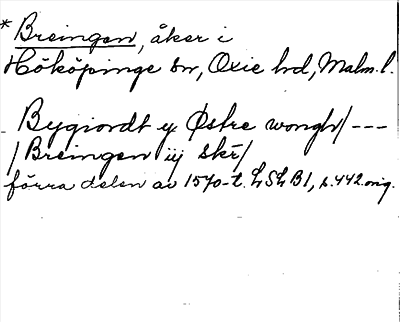 * Breingen, åker i
Hököpinge sn, Oxie hd, Malm. l.
Bygiordt y Østre wongh/ ---
/Breingen iij skr/
förra delen av 1570-t. LSLB1, s. 442 orig.